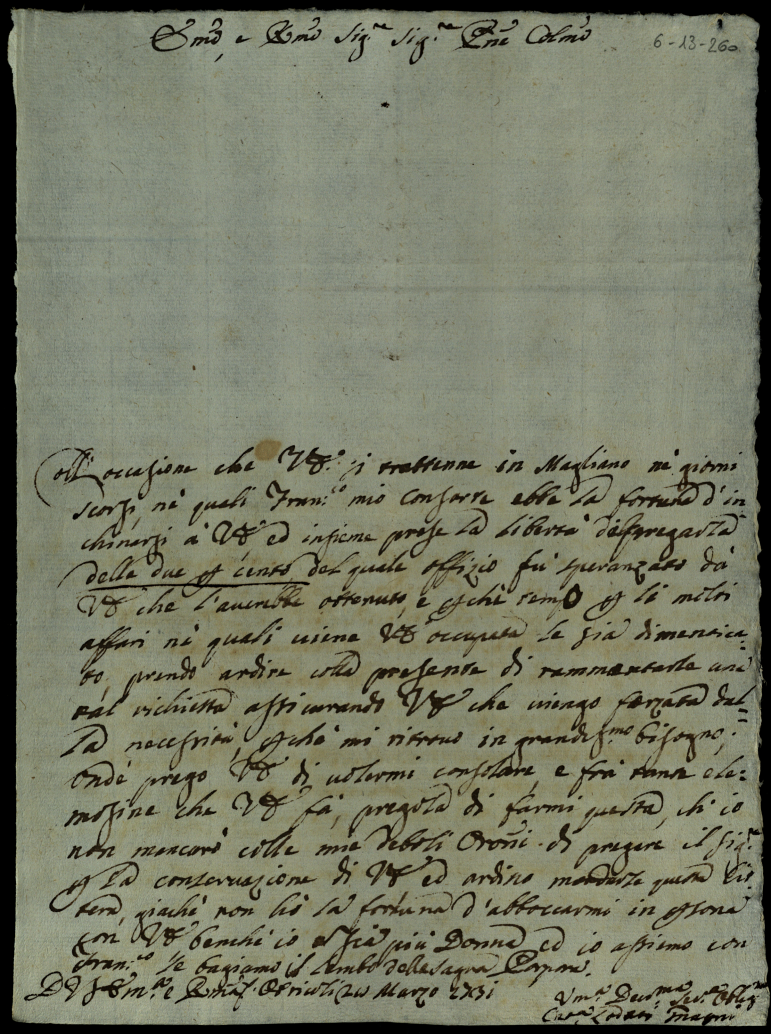 Emo, e Rmo Sig.re Sig.re Pne Colmo
6-13-260
Coll'occasione che VE. si trattenne in Magliano ne giorni
scorsi, ne quali Fran.co mio Consorte ebbe la fortuna d'in
chinarsi à VE ed insieme prese la libertà di
delle due p cento del quale offizio fù speranzato da
VE che l'averebbe ottenuto, e pche temo p li molti
affari ne quali viene VE occupata le sia dimentica=
to, prendo ardire colla presente di rammentarle una
tal richiesta assicurando VE che viengo forzata dal=
la necessità, pche mi ritrovo in grandis.mo bisogno;
onde prego VE di volermi consolare, e frà tante ele=
mosine che VE fà, pregola di farmi questa, ch'io
non mancarò colle mie deboli Oroni di pregare il Sig.re
p la conservazione di VE ed ardisco questa let=
tera, giache non hò la fortuna d'abboccarmi in psona
con VE benche io sia più Donna ed io assieme con
Fran.co le bagiamo il lembo della Sagra Porpora.
D VE m.a e Rma Otricoli 20 Marzo 1731
Vm.a Dev.ma Ser.a Obb.ma